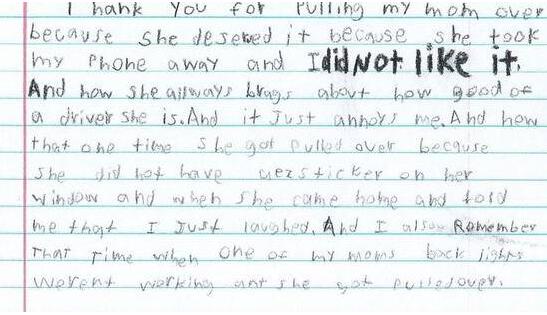 Thank you for Pulling my mom over
because she deserved it because she took
my Phone away and I did Not like it.
And how she allways brags about how good of
a driver she is. And it Just annoys me. And how
that one time she got pulled over because
she did not have sticker on her
window and when she came home and told
me that I Just laughed. And I also Romember
That Time when one of my moms back lights
werent working ant she got pulled over.